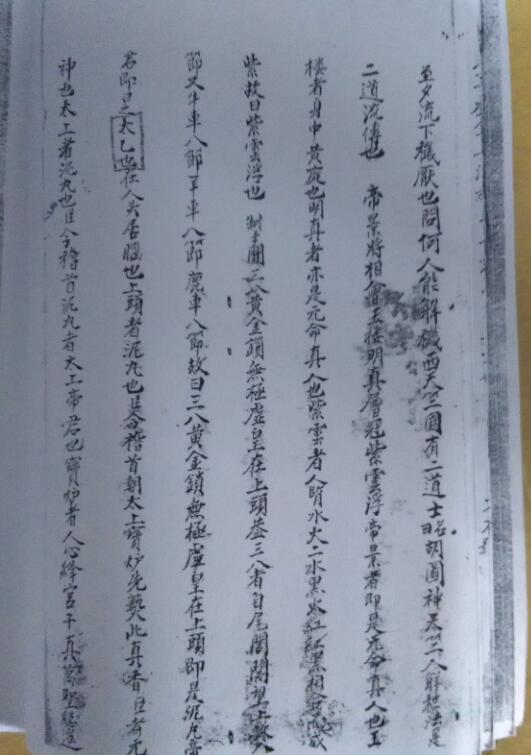 至夕流下機厭也問何人能解機西天竺國有二道士昭胡國神天竺人解想法是
二道流傳也 帝景將相會玉樓明真層冠紫雲浮帝景者即是元命真人也玉
樓者身中黃庭也明真者亦是元命真人也紫雲者人腎水火二水黑火紅紅黑相
紫故曰紫雲浮也 制關三八黃金鎖無極虛皇在上頭蓋三八者自尾閭關
節又牛車八節羊車八節鹿車八節故曰三八黃金鎖無極虛皇在上頭即是泥丸帝
君即是太乙也在人头居腦也上頭者泥丸也臣今稽首朝太上寶炉先爇此真香臣者元
神也太上者泥丸也臣今稽首泥丸者太上帝君也寶炉者人心絳宮千真萬聖